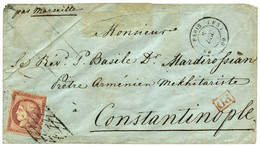 par Marseille
Monsieur
Le Rev. P. Basile Dr. Mardirossian
Prêtre Arménien Mekhitariste
PD
Constantinople